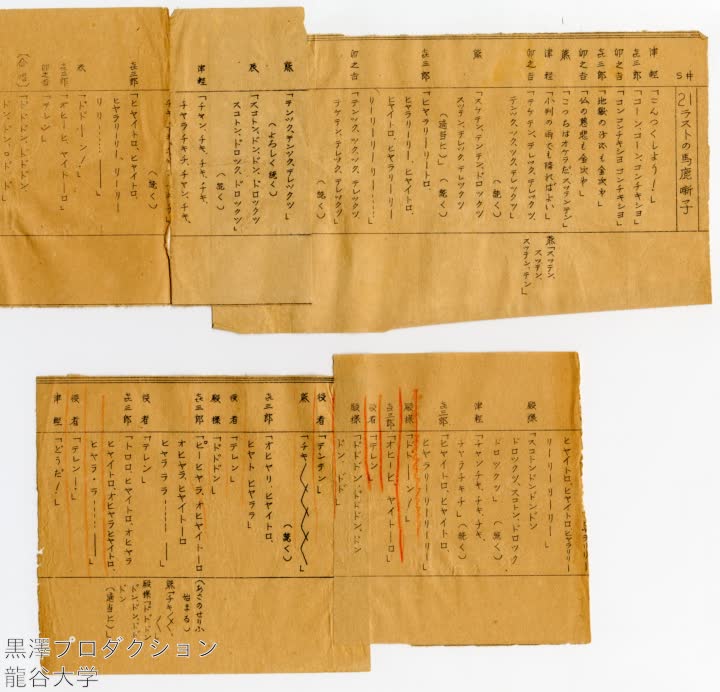 S#21 ラストの馬鹿囃子
津軽「こんつくしよう！」
㐂三郎「コーンコーン、コンチキシヨ」
卯之吉「コンコンチキシヨコンチキシヨ」
㐂三郎「地獄の沙汰も金次第」
卯之吉「仏の慈悲も金次第」
熊「こっちはオケラだ、スッテンテン」
津軽「小判の雨でも降ればよい」
卯之吉「テケテン、テレック、テレツクツ、
テンツク、ツク、テレツクツ」
（続く）
熊「スッテン、
スッテン、
スッテン、テン」
熊「スケテン、テンテン、ドロツクツ
スッテン、テレツク、テレツクツ」
（適当に）（続く）
㐂三郎「ヒヤラリーリートロ、
ヒヤラリーリー、ヒヤイトロ、
ヒヤイトロ、ヒヤラリリー
リーリーリーリー………」
（続く）
卯之吉「テンツク、ツク、ツク、テレツクツ
テケテン、テレツク、テレツクツ」
（続く）
熊「テンツク、テンツク、テレツクツ」
（よろしく続く）
茂「スコトン、ドンドン、ドロツクツ
スコトン、ドロツク、ドロツクツ」
（続く）
津軽「チャン、チキ、チキ、チキ、
チャラ、チキチ、チャン、チキ、
（続く）
㐂三郎「ヒヤイトロ、ヒヤイトロ、
ヒヤラリーリー、リーリー
リリ………」
茂「ドドーン！」
㐂三郎「オヒーヒ、ヤイトーロ」
卯之吉「テレン」
（合唱）「ドドドドン
ドンドンドンドド
ヒヤイトロ、ヒヤイトロヒヤラリリー
リーリーリーリー」
殿様「スコトンドンドンドン
ドロツクツ、スコトン、ドロツク
ドロツクツ」（続く）
津軽「チャンチキ、チキ、チキ、
チャラチキチ」（続く）
㐂三郎「ヒヤイトロ、ヒヤイトロ、
ヒヤラリーリーリーリー」
殿様「ドドーン！」
㐂三郎「オヒーヒ、ヤイトーロ」
役者「テレン」
殿様「ドドドドン、ドドドン、ドン
ドン、ドド」
役者「テンテン」
熊「チキ
（続く）
㐂三郎「オヒヤリ、ヒヤイトロ、
ヒヤト ヒヤララ」
役者「テレン」
殿様「ドドドン」
㐂三郎「ピーヒヤラ、オヒヤイトーロ
オヒヤラ、ヒヤイトーロ
ヒヤラララ………」
役者「テレン」
㐂三郎「トロロ、ヒヤイトロ、オヒヤラ
ヒヤイトロ、オヒヤラヒヤイトロ、
ヒヤララ………」
役者「テレンー」
津軽「どうだ！」
（あとのせりふ
始まる）
熊「チキ
殿様「ドドドン
ドンドン、ドド
ドン
（適当に）」
黒澤プロダクション
龍谷大学